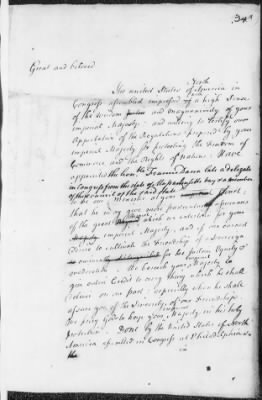 34
Great and beloved
North
The United States of America in
Congress assembled impressed with a high Sense
of the Wisdom and Magnanimity of your
imperial Majesty and wishing to testify our
Approbation of the Regulations proposed by your
imperial Majesty for protecting the Freedom of
Commerce and the Rights of Nations, Have
appointed the hon. Francis Dana late a delegate
in Congress from the state of Massachusetts bay & a member
of the council of the said state
to be our Minister at your Court,
that he may give such particular assurances
of the great which we entertain for your
imperial Majesty, and of our earnest
Desire to cultivate the Friendship of a Sovereign
so for Justice Equity &
Moderation. We beseech your Majesty to
give entire Credit to every thing which he shall
deliver on our part especially when he shall
assure you of the Sincerity of our Friendship.
We pray God to keep your Majesty in his holy
Protection. Done by the United States of North
America assembled in Congress at Philadelphia
the in